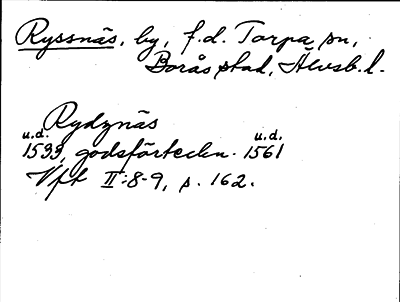 Ryssnäs, by, f.d. Torpa sn,
Borås stad, Älvsb. l.
Rydznäs
u.d. u.d.
1533, godsförteckn. 1561
Vft II:8-9, p. 162.